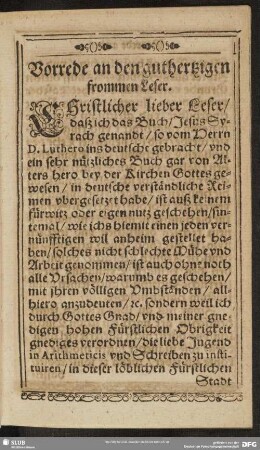 Vorrede an den guthertzigen
frommen Leser.
CHristlicher lieber Leser/
daß ich das Buch/ Jesus Sy-
rach genandt/ so vom Herrn
D. Luthero ins deutsche gebracht/ vnd
ein sehr nützliches Buch gar von Al-
ters hero bey der Kirchen Gottes ge-
wesen/ in deutsche verständliche Rei-
men vbergesetzt habe/ ist auß keinem
fürwitz oder eigen nutz geschehen/ sin-
temal/ wie ichs hiemit einen jeden ver-
nünfftigen wil anheim gestellet ha-
ben/ solches nicht schlechte Mühe vnd
Arbeit genommen/ ist auch ohnt noch
alle Vrsachen/ warumb es geschehen/
mit jhren völligen Vmbständen/ all-
hiero anzudeuten/ ꝛc. sondern weil ich
durch Gottes Gnad/ vnd meiner gne-
digen hohen Fürstlichen Obrigkeit
gnediges verordnen/ die liebe Jugend
in Arithmeticis vnd Schreiben zu insti-
tuiren/ in dieser löblichen Fürstlichen
Stadt
SLUB
DFG